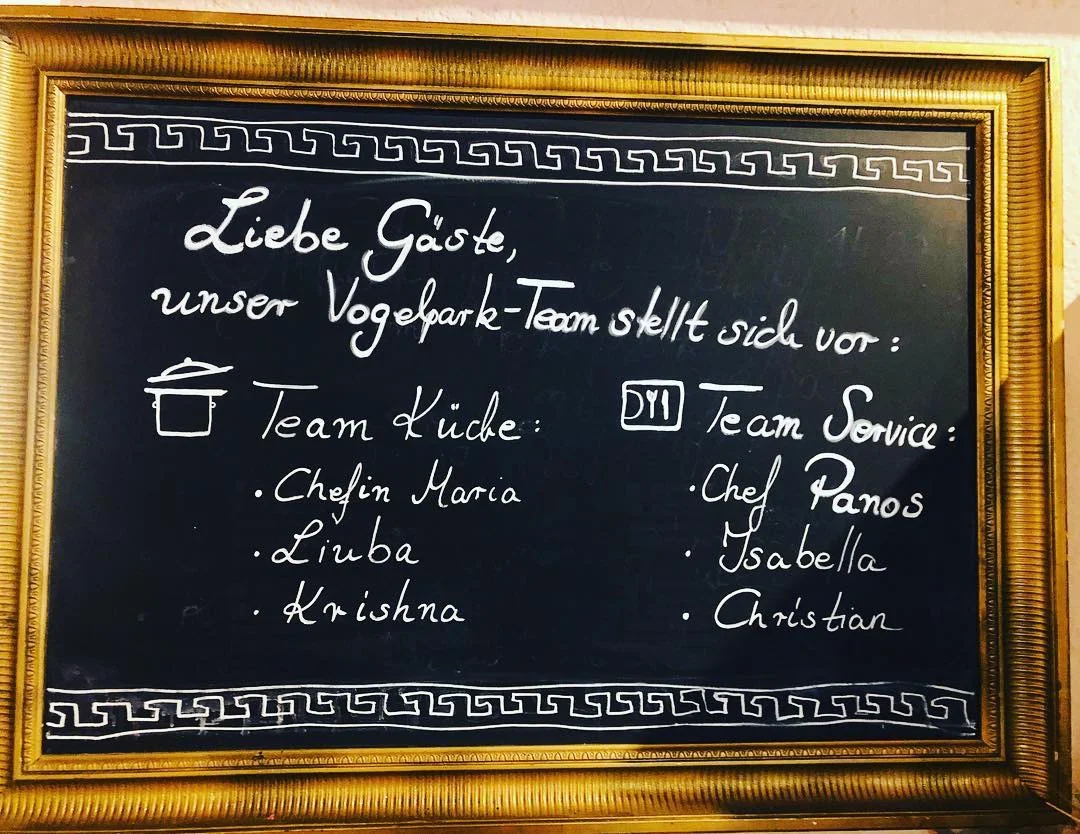 Liebe Gäste,
unser Vogelpark-Team stellt sich vor:
Team Küche:
• Chefin Maria
• Liuba
• Krishna
Team Service:
• Chef Panos
• Isabella
• Christian